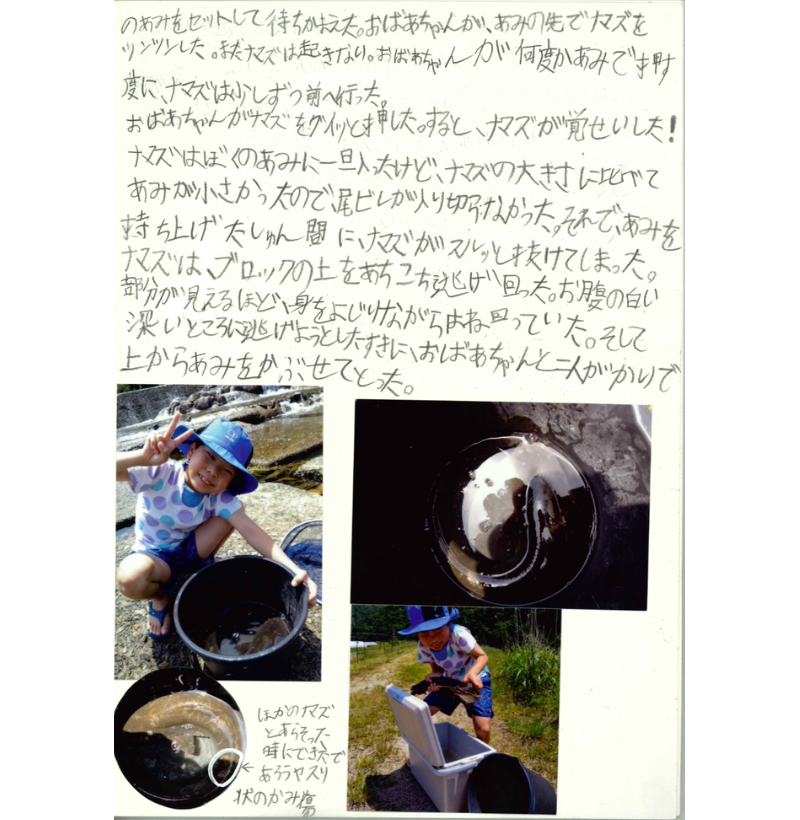 のあみをセットして待ちかまえた。おばあちゃんが、あみの先でナマズを
ツンツンした。まだナマズは起きない。おばあちゃんが何度かあみで押す
度に、ナマズは少しずつ前へ行った。
おばあちゃんがナマズをグイッと押した。すると、ナマズが覚せいした!
ナマズはぼくのあみに一旦入ったけど、ナマズの大きさに比べて
あみが小さかったので、尾ビレが入り切らなかった。それで、あみを
持ち上げたしゅん間に、ナマズがスルッと抜けてしまった。
ナマズは、ブロックの上をあちこち逃げ回った。お腹の白い
部分が見えるほど、身をよじりながらはね回っていた。そして
深いところに逃げようとしたすきに、おばあちゃんと二人がかりで
上からあみをかぶせてとった。
ほかのナマズ
とあらそった
時にできたで
あろうヤスリ
状のかみ傷